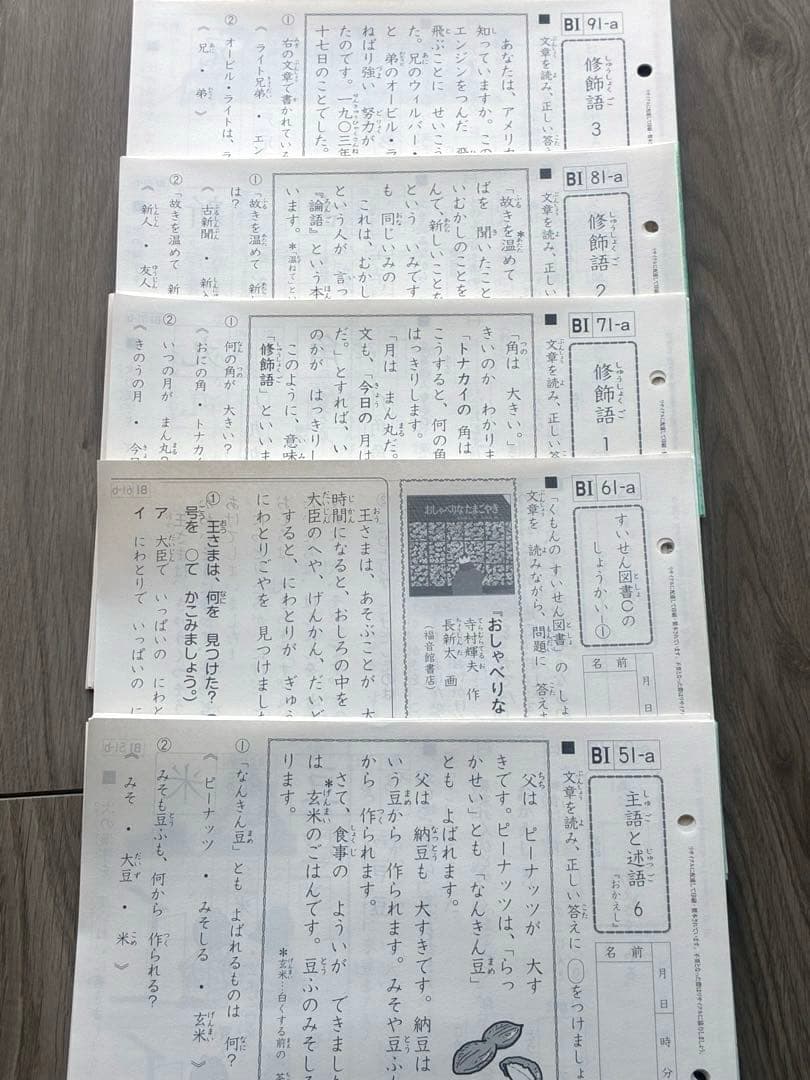 BI 91-a
修飾語 3
文章を読み、正しい答
あなたは、アメリカ
知っていますか。この
エンジンをつんだ 飛
飛ぶことに せいこう
た。兄のウィルバー・
と 弟のオービル・ラ
ねばり強い 努力が
たのです。一九〇三年
十七日のことでした。
① 右の文章で書かれている
ライト兄弟 ・ エン
② オービル・ライトは、ラ
《 兄 ・ 弟 》
BI 81-a
修飾語 2
文章を読み、正しい
「故きを温めて
ばを 聞いたこと
いむかしのことを
んで、新しいことを
という いみです
も 同じいみの
これは、むかし
という人が 言っ
『論語』という本
います。
① 「故きを温めて 新
は?
《 古新聞 ・ 新
② 「故きを温めて 新
《 新人 ・ 友人
BI 71-a
修飾語 1
文章を読み、正しい答
「角は 大きい。」
きいのか わかりま
「トナカイの 角は
こうすると、何の角
はっきりします。
「月は まん丸だ。
文も、「今日の 月は
だ。」とすれば、い
のかが はっきりし
このように、意味
「修飾語」といいま
① 何の角が 大きい?
《 おにの角 ・ トナカイ
② いつの月が まん丸?
《 きのうの月 ・ 今日
BI 61-a
すいせん図書〇の
しょうかい—①
名前
月
日
「くもんの すいせん図書」の しょ
文章を 読みながら、問題に 答えま
おしゃべりなたまごやき
『おしゃべりな
寺村輝夫 作
長新太 画
(福音館書店)
王さまは、あそぶことが 大
時間になると、おしろの中を
大臣のへや、げんかん、だいど
すると、にわとりが ぎゅう
にわとりごやを 見つけました
① 王さまは、何を 見つけた?
号を 〇で かこみましょう。)
ア 大臣で いっぱいの にわと
イ にわとりで いっぱいの に
BI 51-a
主語と述語 6
『おかえし』
名前
月
日
時
分
文章を読み、正しい答えに 〇をつけましょ
父は ピーナッツが 大す
きです。ピーナッツは、「らっ
かせい」とも「なんきん豆」
とも よばれます。
父は 納豆も 大すきです。納豆は
いう豆から 作られます。みそや豆ふ
から 作られます。
さて、食事の よういが できました
は *玄米のごはんです。豆ふのみそしる
ります。
*玄米…白くする前の
① 「なんきん豆」とも よばれるものは 何?
《 ピーナッツ ・ みそしる ・ 玄米
② みそも豆ふも、何から 作られる?
《 みそ ・ 大豆 ・ 米 》